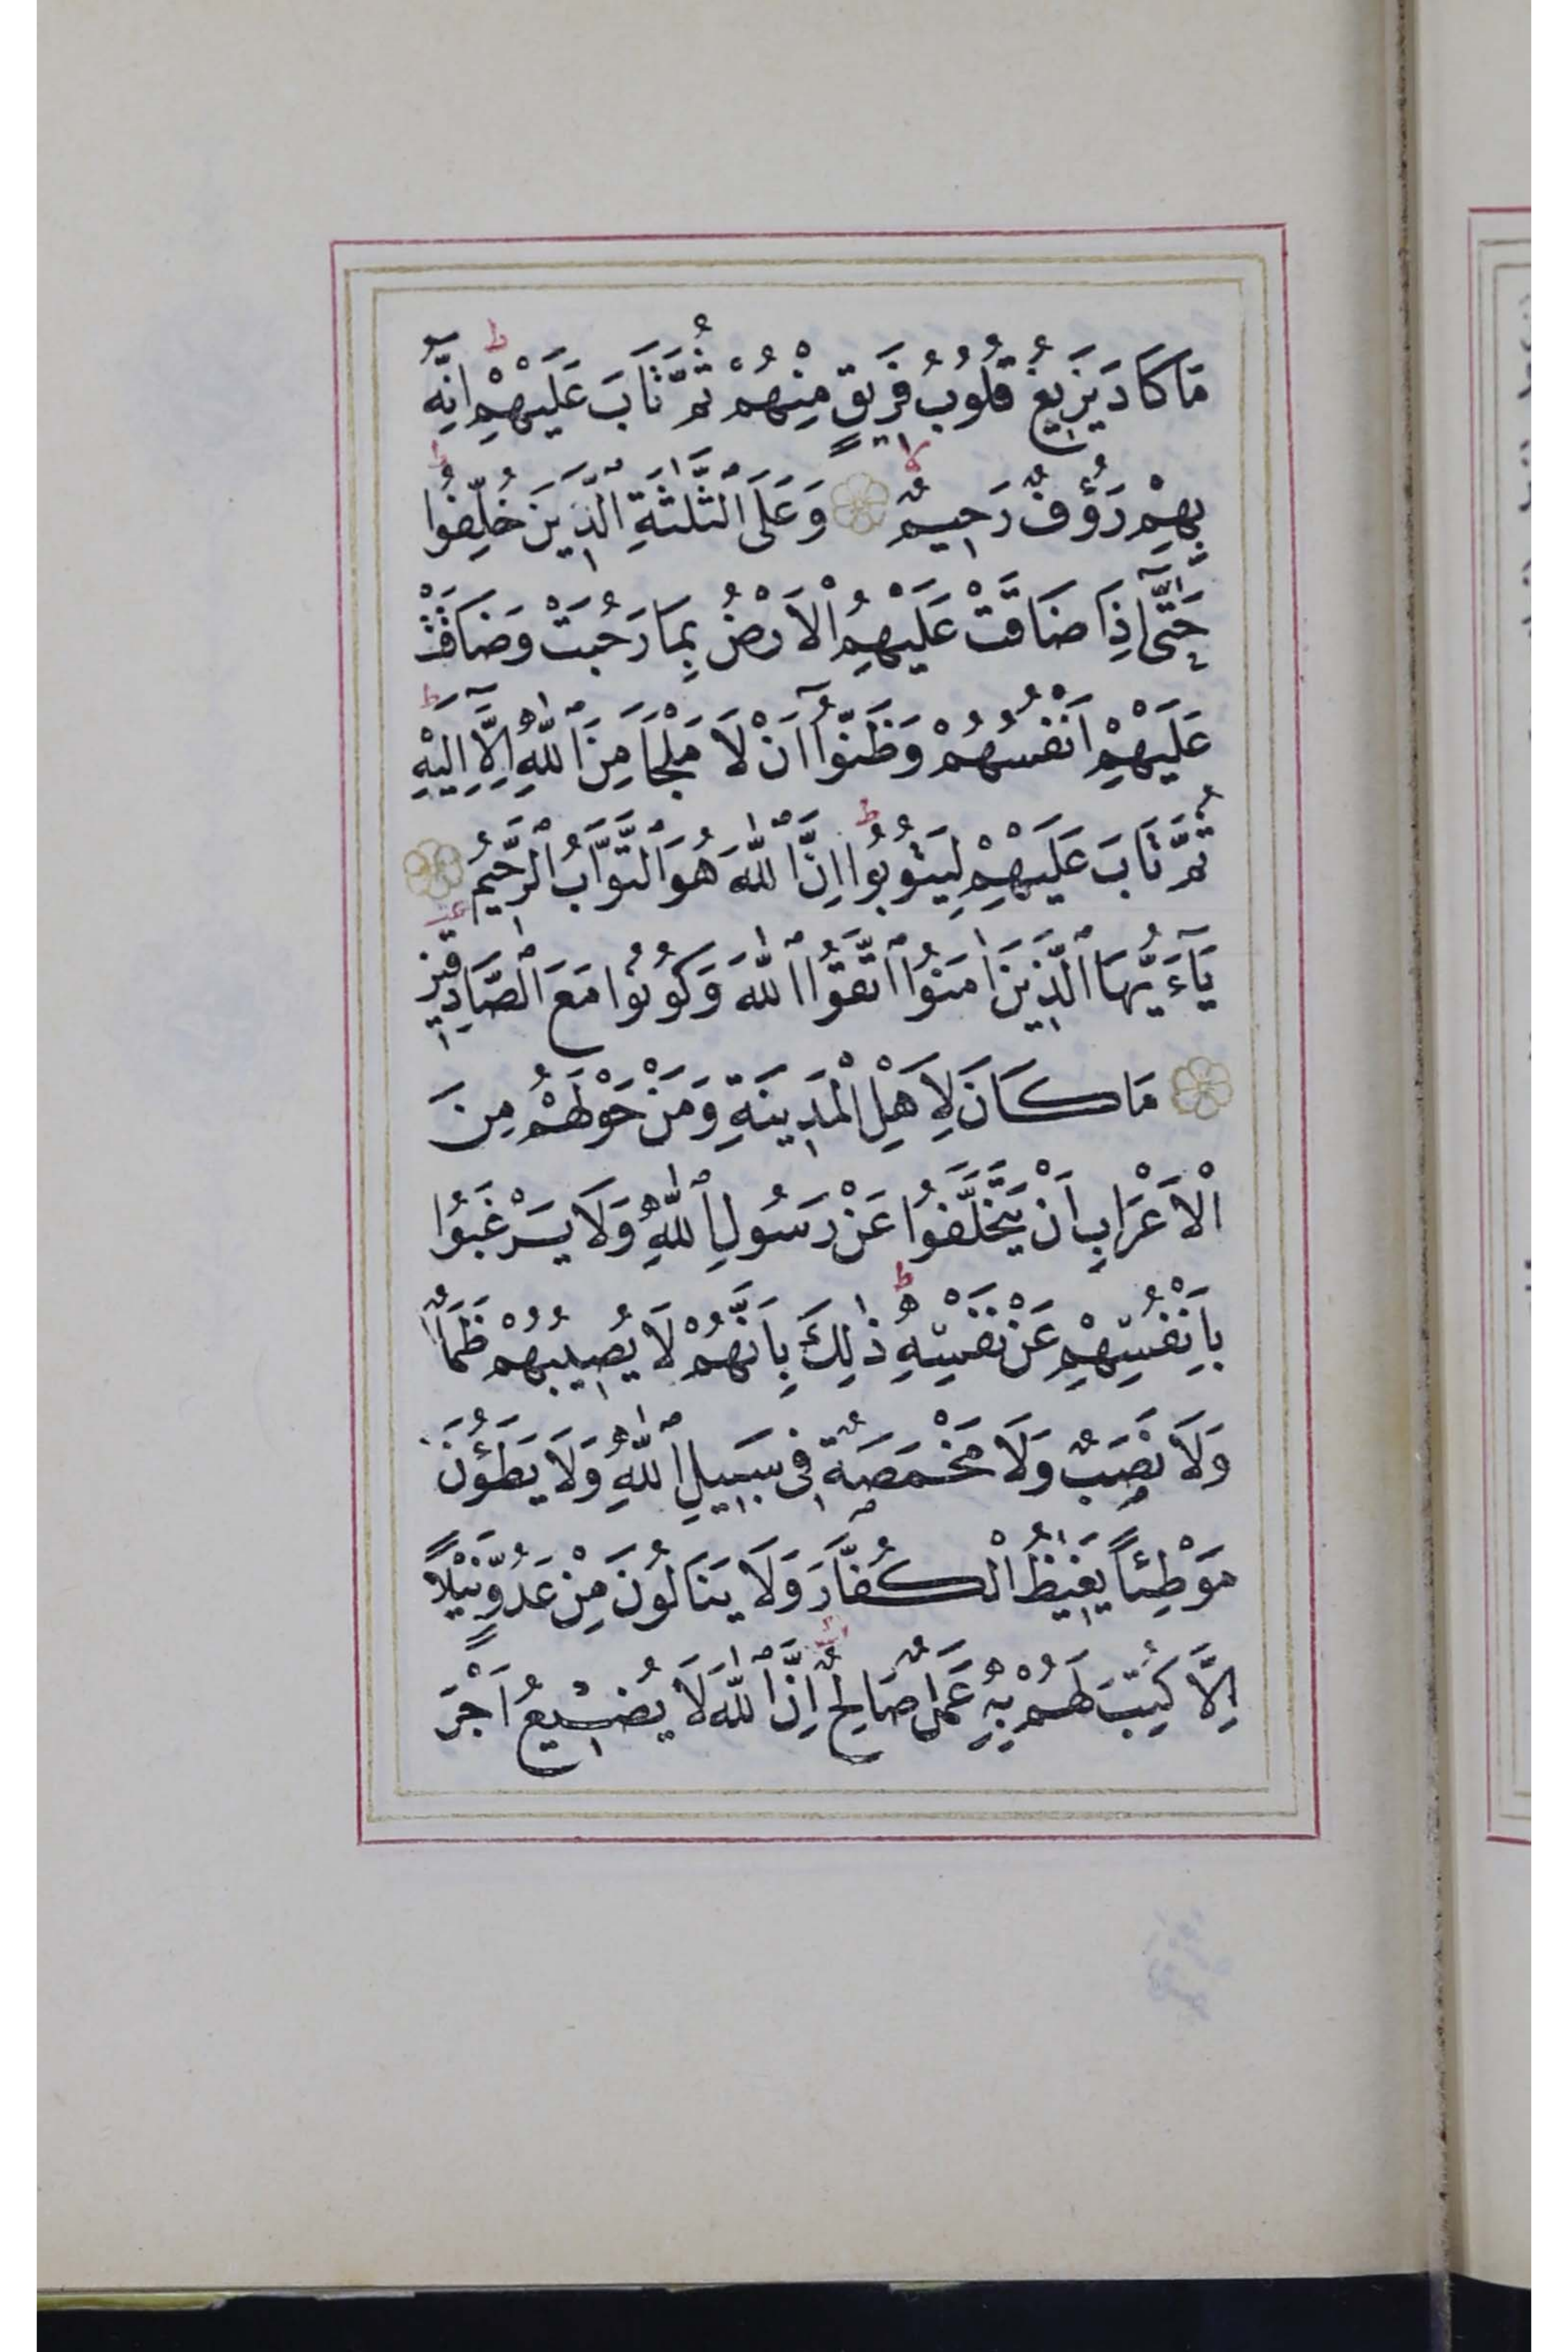 مَا كَادَ يَزِيغُ قُلُوبُ فَرِيقٍ مِنْهُمْ ثُمَّ تَابَ عَلَيْهِمْ ۜ اِنَّهُ
بِهِمْ رَؤُفٌ رَحِيمٌ وَعَلَى ٱلثَّلٰثَةِ ٱلَّذِينَ خُلِّفُوا ط
حَتّٰٓى اِذَا ضَاقَتْ عَلَيْهِمُ الْاَرْضُ بِمَا رَحُبَتْ وَضَاقَتْ
عَلَيْهِمْ اَنْفُسُهُمْ وَظَنُّوٓا اَنْ لَا مَلْجَاَ مِنَ ٱللّٰهِ اِلَّٓا اِلَيْهِ ط
ثُمَّ تَابَ عَلَيْهِمْ لِيَتُوبُوا ط اِنَّ ٱللّٰهَ هُوَ ٱلتَّوَّابُ ٱلرَّحِيمُ
يَٓاءَيُّهَا ٱلَّذِينَ اٰمَنُوا ٱتَّقُوا ٱللّٰهَ وَكُونُوا مَعَ ٱلصَّادِقِينَ
مَا كَانَ لِاَهْلِ الْمَدِينَةِ وَمَنْ حَوْلَهُمْ مِنَ
الْاَعْرَابِ اَنْ يَتَخَلَّفُوا عَنْ رَسُولِ ٱللّٰهِ وَلَا يَرْغَبُوا
بِاَنْفُسِهِمْ عَنْ نَفْسِهِ ط ذٰلِكَ بِاَنَّهُمْ لَا يُصِيبُهُمْ ظَمَاٌ
وَلَا نَصَبٌ وَلَا مَخْمَصَةٌ فِى سَبِيلِ ٱللّٰهِ وَلَا يَطَؤُنَ
مَوْطِئًا يَغِيظُ الْكُفَّارَ وَلَا يَنَالُونَ مِنْ عَدُوٍّ نَيْلًا
اِلَّا كُتِبَ لَهُمْ بِهِ عَمَلٌ صَالِحٌ ط اِنَّ ٱللّٰهَ لَا يُضِيعُ اَجْرَ